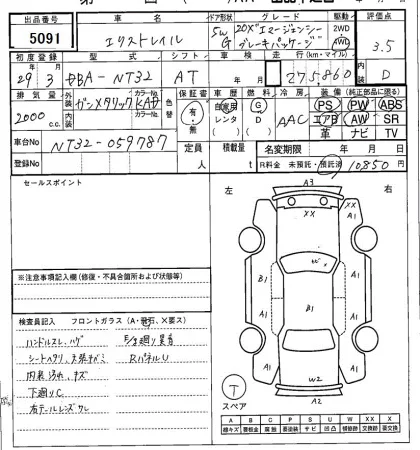 出品番号 車名 ドア形状 グレード 駆動 評価点
5091 エクストレイル 5W G 20X エマージェンシーブレーキパッケージ 2WD 4WD 3.5
初度登録 型式 シフト 車検 走行(km・マイル) 内装
29年3月 DBA-NT32 AT 年 月 275,860 D
排気量 外装 カラーNo. 色替 カラーNo. 保証書 車歴 燃料 冷房 装備(純正部品に限る)
2000c.c. ガンメタリック KAD 有・無 自家用 レンタ G D AAC PS PW ABS
エアB AW SR
革 ナビ TV
車台No NT32-059787 定員 人 積載量 t 名変期限 年 月 日
登録No R料金 未預託・預託済 10,850円
セールスポイント
左 右
A3
XX
XX
A1
A1
A1
B1
B1
A1
A1
W2
A2
※注意事項記入欄(修復・不具合箇所および欠品等)
検査員記入 フロントガラス(A・飛石、X要ス)
ハンドルスレ、ハゲ
シートヘタリ、
内装汚れ、キズ
下廻りC
右テールレンズワレ
RパネルU
T
スペア
A B C P S U W X XX
線キズ 要板金 腐食 要塗装 サビ 凹凸 補修跡 要交換 交換済